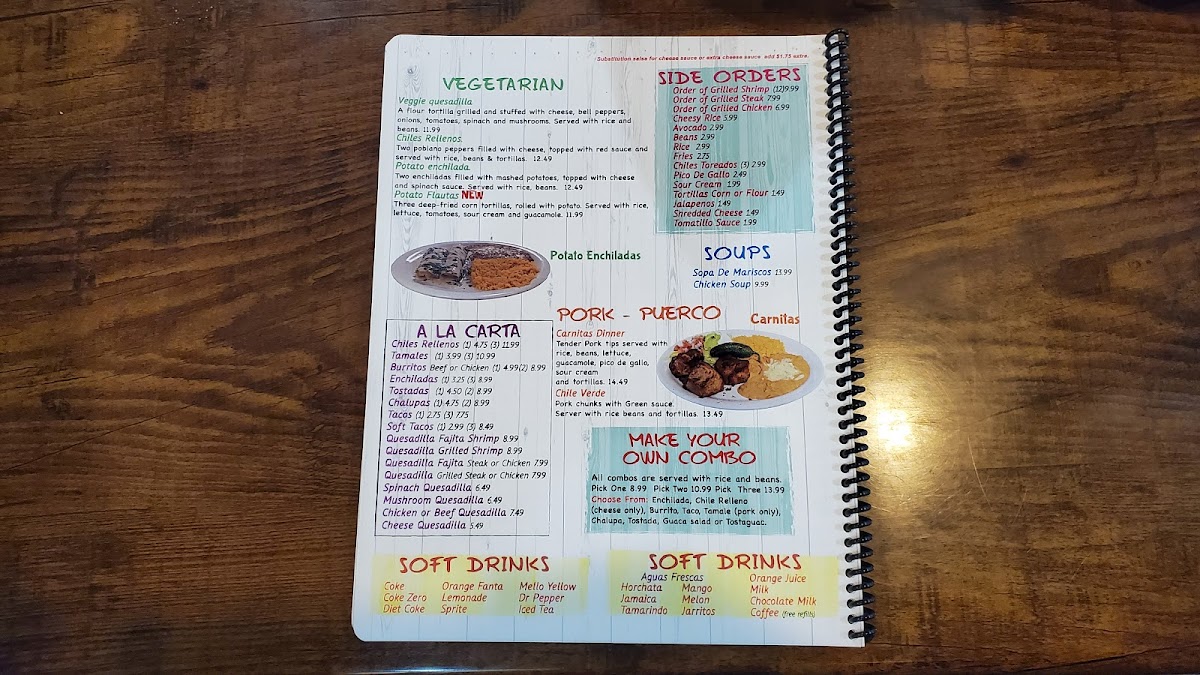 Substitution salsa for cheese sauce or extra cheese sauce add $1.75 extra.
VEGETARIAN
Veggie quesadilla
A flour tortilla grilled and stuffed with cheese, bell peppers,
onions, tomatoes, spinach and mushrooms. Served with rice and
beans. 11.99
Chiles Rellenos.
Two poblano peppers filled with cheese, topped with red sauce and
served with rice, beans & tortillas. 12.49
Potato enchilada.
Two enchiladas filled with mashed potatoes, topped with cheese
and spinach sauce. Served with rice, beans. 12.49
Potato Flautas NEW
Three deep-fried corn tortillas, rolled with potato. Served with rice,
lettuce, tomatoes, sour cream and guacamole. 11.99
SIDE ORDERS
Order of Grilled Shrimp (12)9.99
Order of Grilled Steak 7.99
Order of Grilled Chicken 6.99
Cheesy Rice 5.99
Avocado 2.99
Beans 2.99
Rice 2.99
Fries 2.75
Chiles Toreados (3) 2.99
Pico De Gallo 2.49
Sour Cream 1.99
Tortillas Corn or Flour 1.49
Jalapenos 1.49
Shredded Cheese 1.49
Tomatillo Sauce 1.99
Potato Enchiladas
SOUPS
Sopa De Mariscos 13.99
Chicken Soup 9.99
A LA CARTA
Chiles Rellenos (1) 4.75 (3) 11.99
Tamales (1) 3.99 (3) 10.99
Burritos Beef or Chicken (1) 4.99(2) 8.99
Enchiladas (1) 3.25 (3) 8.99
Tostadas (1) 4.50 (2) 8.99
Chalupas (1) 4.75 (2) 8.99
Tacos (1) 2.75 (3) 7.75
Soft Tacos (1) 2.99 (3) 8.49
Quesadilla Fajita Shrimp 8.99
Quesadilla Grilled Shrimp 8.99
Quesadilla Fajita Steak or Chicken 7.99
Quesadilla Grilled Steak or Chicken 7.99
Spinach Quesadilla 6.49
Mushroom Quesadilla 6.49
Chicken or Beef Quesadilla 7.49
Cheese Quesadilla 5.49
PORK - PUERCO
Carnitas
Carnitas Dinner
Tender Pork tips served with
rice, beans, lettuce,
guacamole, pico de gallo,
sour cream
and tortillas. 14.49
Chile Verde
Pork chunks with Green sauce.
Server with rice beans and tortillas. 13.49
MAKE YOUR
OWN COMBO
All combos are served with rice and beans.
Pick One 8.99 Pick Two 10.99 Pick Three 13.99
Choose From: Enchilada, Chile Relleno
(cheese only), Burrito, Taco, Tamale (pork only),
Chalupa, Tostada, Guaca salad or Tostaguac.
SOFT DRINKS
Coke Orange Fanta Mello Yellow
Coke Zero Lemonade Dr Pepper
Diet Coke Sprite Iced Tea
SOFT DRINKS
Aguas Frescas Orange Juice
Horchata Mango Milk
Jamaica Melon Chocolate Milk
Tamarindo Jarritos Coffee (free refills)